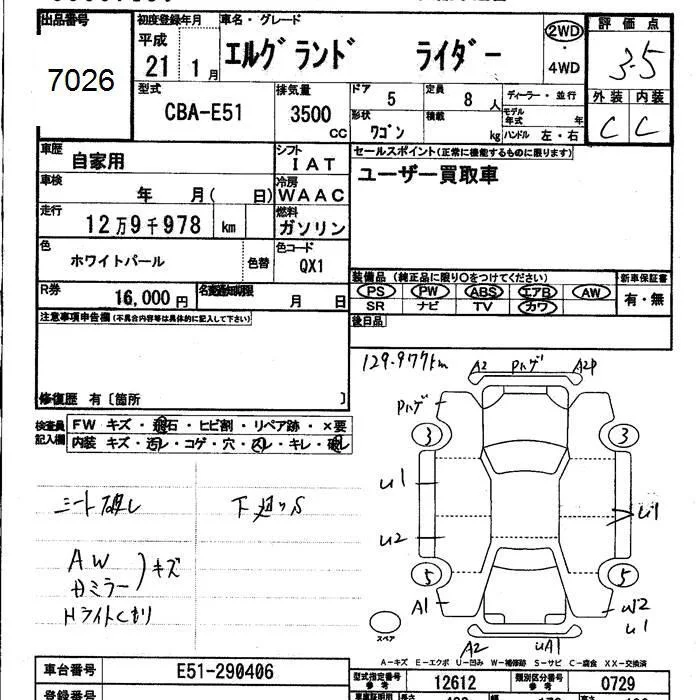 出品番号 初度登録年月 車名・グレード 評価点
7026
平成 21 1月 エルグランド ライダー 2WD・4WD 3.5
型式 排気量 ドア 定員 ディーラー・並行 外装 内装
CBA-E51 3500 CC 5 8人 モデル年式 年 C C
形状 積載
ワゴン kg ハンドル 左・右
車歴 シフト セールスポイント(正常に機能するものに限ります)
自家用 IAT ユーザー買取車
車検 冷房
年 月( 日) WAAC
走行 燃料
12万9千978 km ガソリン
色 色コード
ホワイトパール 色替 QX1
装備品 (純正品に限り○をつけてください) 新車保証書
R券 16,000円 月 日
PS PW ABS エアB AW 有・無
SR ナビ TV カワ
注意事項申告欄(不具合内容等は具体的に記入して下さい) 後日品
129.977km A2 Pハゲ A2P
Pハゲ
修復歴 有〔箇所 〕
検査員記入欄 FW キズ・飛石・ヒビ割・リペア跡・×要
内装 キズ・汚レ・コゲ・穴・スレ・キレ・破レ
3 3
シート破レ 下廻りS
U1 U1
U2
AW
ドミラー)キズ
Hライトくもり
5 5
A1 W2
U1
スペア
A2 UA1
A-キズ E-エクボ U-凹み W-補修跡 S-サビ C-腐食 XX-交換済
車台番号 E51-290406 型式指定番号 12612 類別区分番号 0729
参考 参考
登録番号